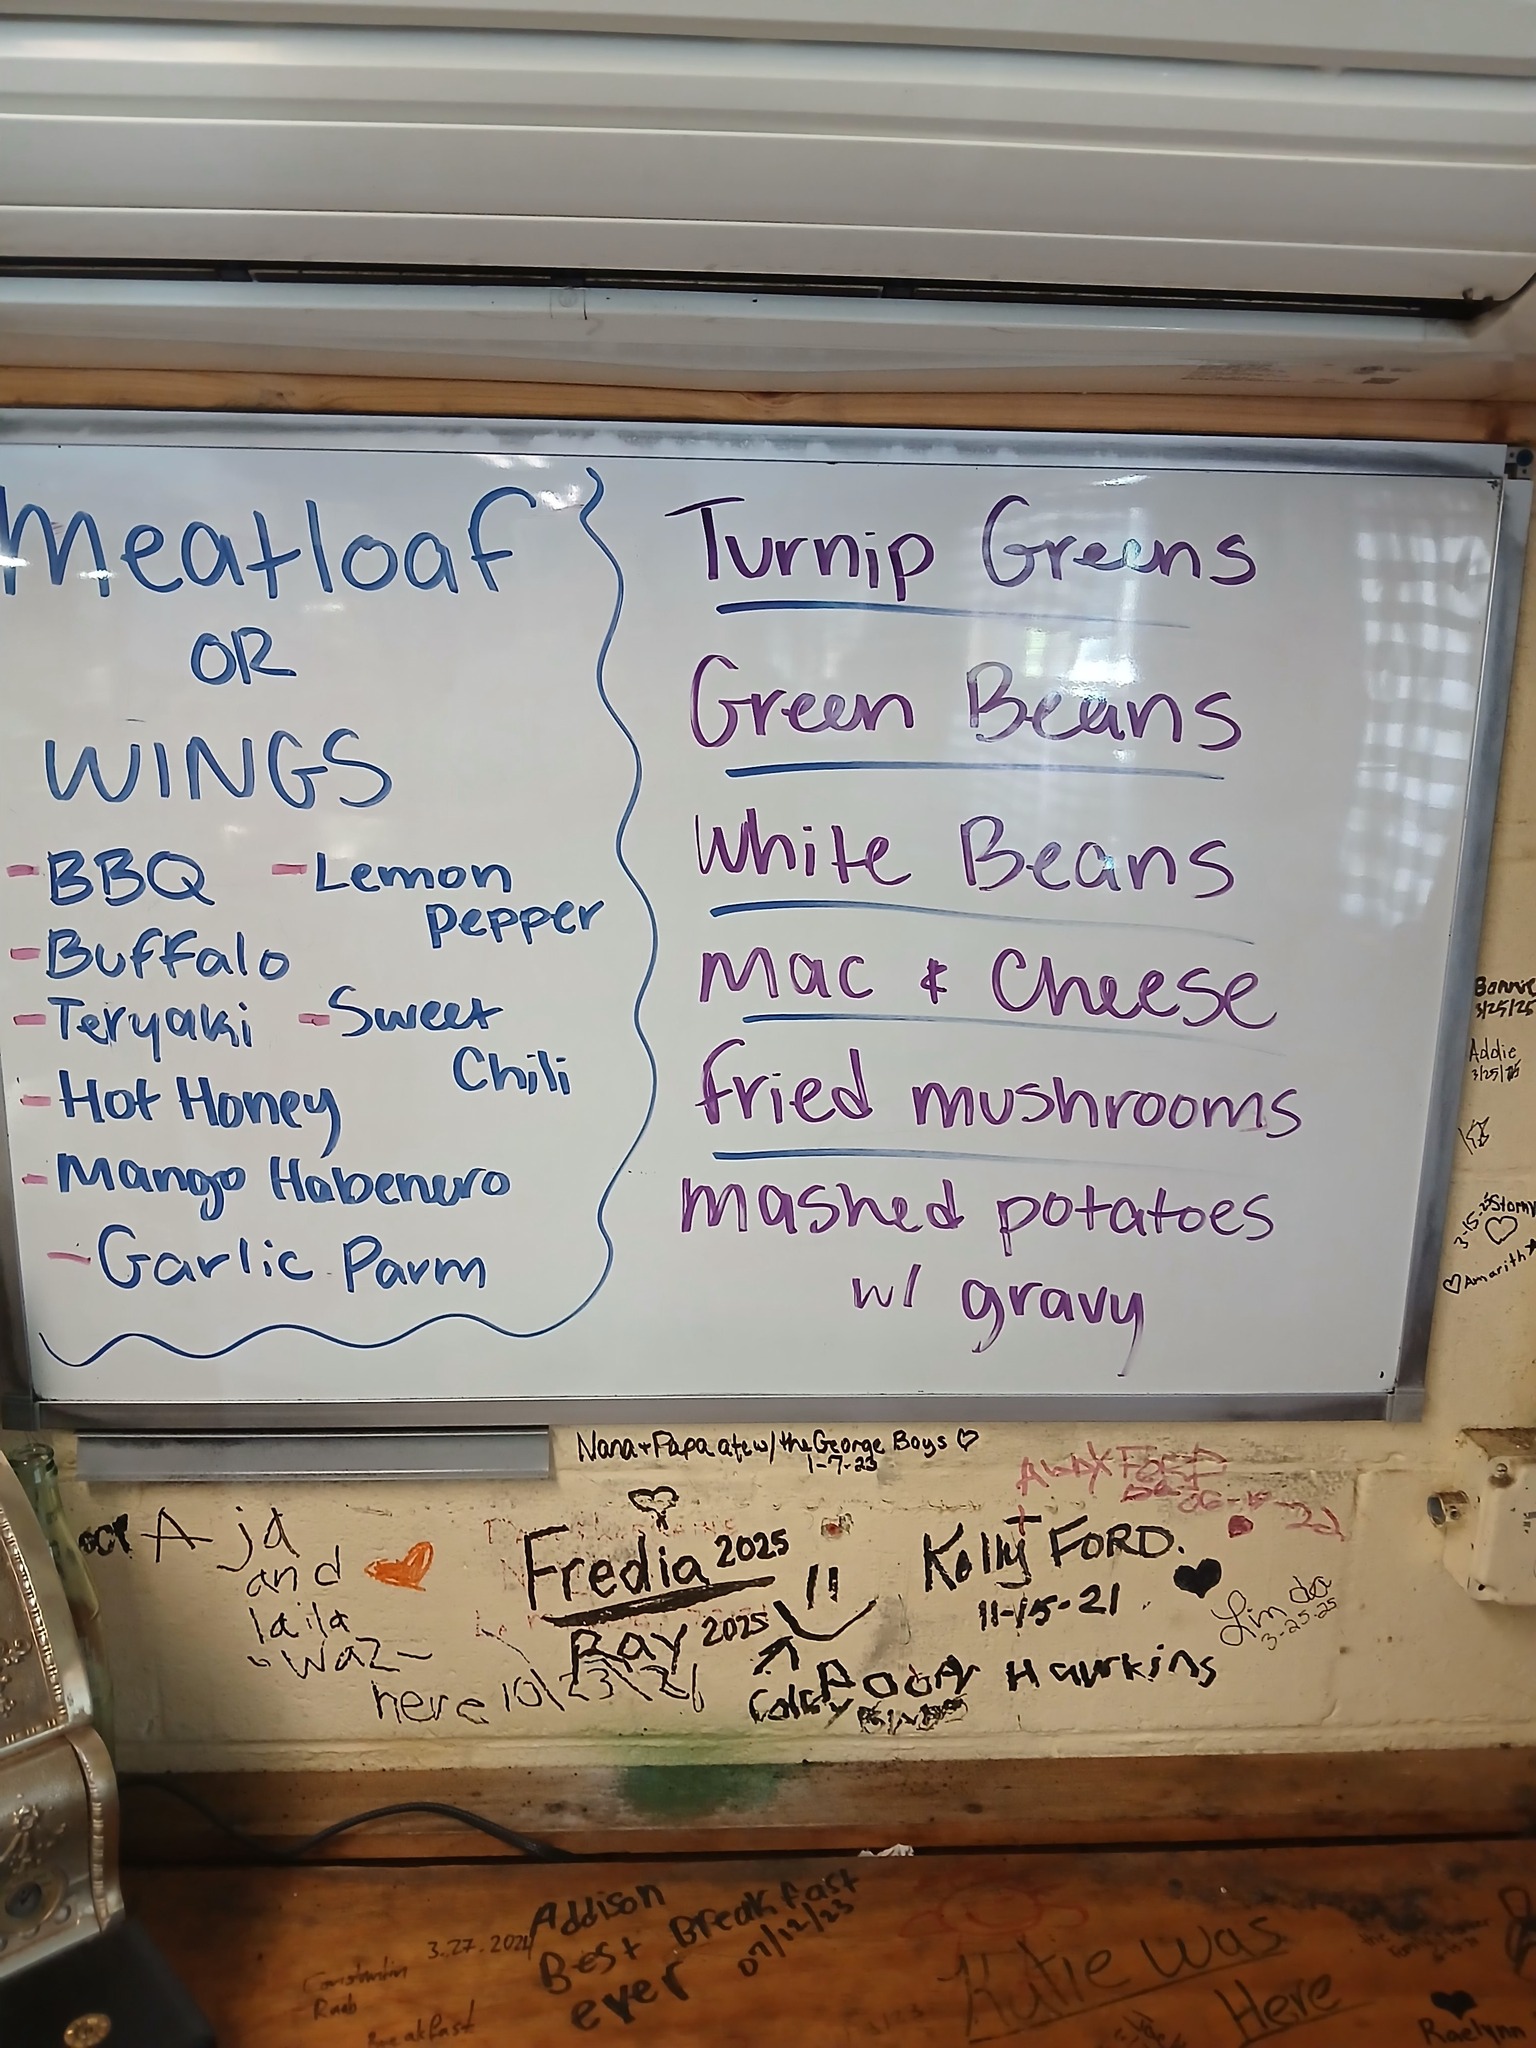 Meatloaf
OR
WINGS
- BBQ - Lemon
Pepper
- Buffalo
- Teryaki - Sweet
Chili
- Hot Honey
- Mango Habenero
- Garlic Parm
Turnip Greens
Green Beans
White Beans
Mac & Cheese
Fried mushrooms
mashed potatoes
w/ gravy
Bonnie
3/25/25
Addie
3/25/25
Stormy
3-15-25
Amarith
Nana + Papa ate w/ the George Boys
1-7-23
Aja
and
laila
waz
here 10/23/21
Fredia 2025
Ray 2025
Kelly FORD.
11-15-21
Linda
3-25-25
Hawkins
3.27.2021
Addison
Best Breakfast
ever 07/12/23
Constantin
Raab
Breakfast
Katie was
Here
Raelynn